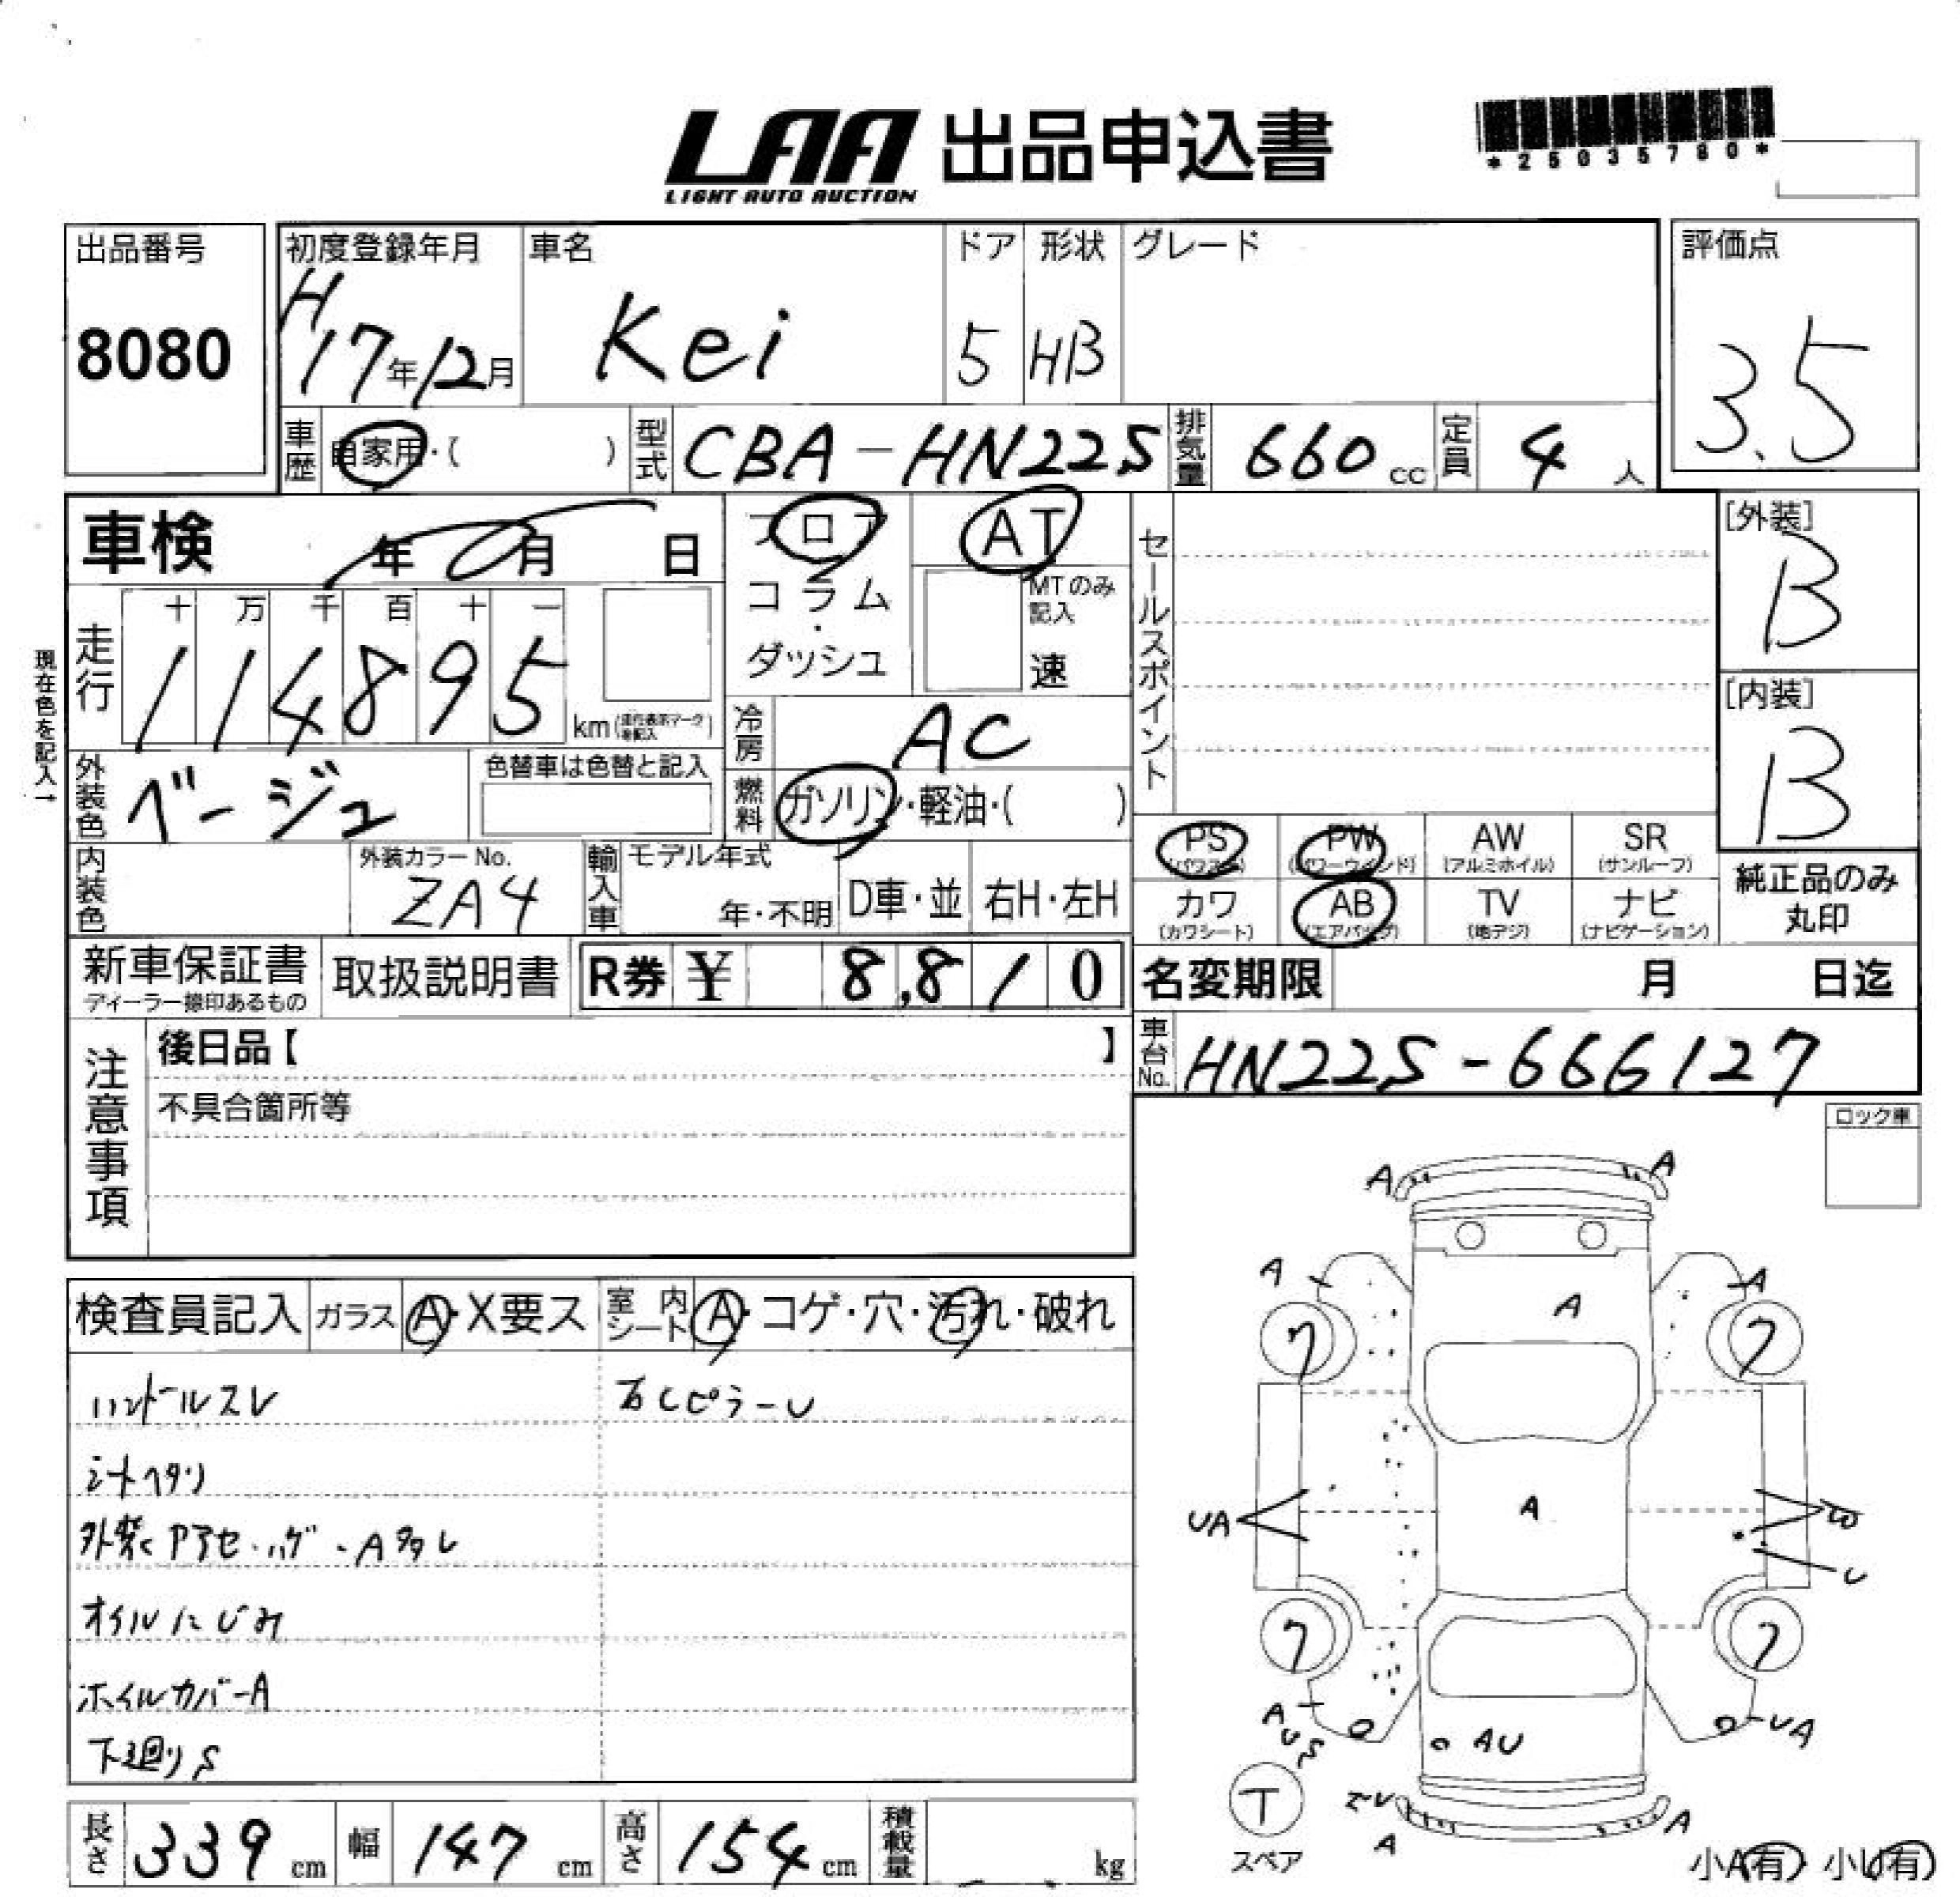 LAA 出品申込書
LIGHT AUTO AUCTION
*25035780*
出品番号
8080
初度登録年月
H17年12月
車名
Kei
ドア
5
形状
HB
グレード
評価点
3.5
車歴
自家用・( )
型式
CBA-HN22S
排気量
660 cc
定員
4 人
車検 年 月 日
フロア
コラム
・
ダッシュ
AT
MTのみ記入
速
セールスポイント
[外装]
B
[内装]
B
現在色を記入→
走行
十 万 千 百 十 一
114895 km (走行表示マークを記入)
冷房
AC
外装色
ベージュ
色替車は色替と記入
燃料
ガソリン・軽油・( )
PS (パワステ)
PW (パワーウインド)
AW (アルミホイル)
SR (サンルーフ)
カワ (カワシート)
AB (エアバッグ)
TV (地デジ)
ナビ (ナビゲーション)
純正品のみ
丸印
内装色
外装カラーNo.
ZA4
輸入車
モデル年式
年・不明
D車・並
右H・左H
新車保証書
ディーラー捺印あるもの
取扱説明書
R券 ¥ 8,810
名変期限 月 日迄
注意事項
後日品【 】
不具合箇所等
車台No.
HN22S-666127
ロック車
検査員記入
ガラス A・X要ス
室内シート A・コゲ・穴・汚れ・破れ
ハンドルスレ
右CピラーU
シートヘタリ
外装 アセ・ハゲ・A多数
オイルにじみ
ホイルカバーA
下廻りS
A
A
A
A
A
7
7
UA
A
U
7
7
A
U
S
UA
AU
T
スペア
A
A
小A(有) 小U(有)
長さ
339 cm
幅
147 cm
高さ
154 cm
積載量
kg